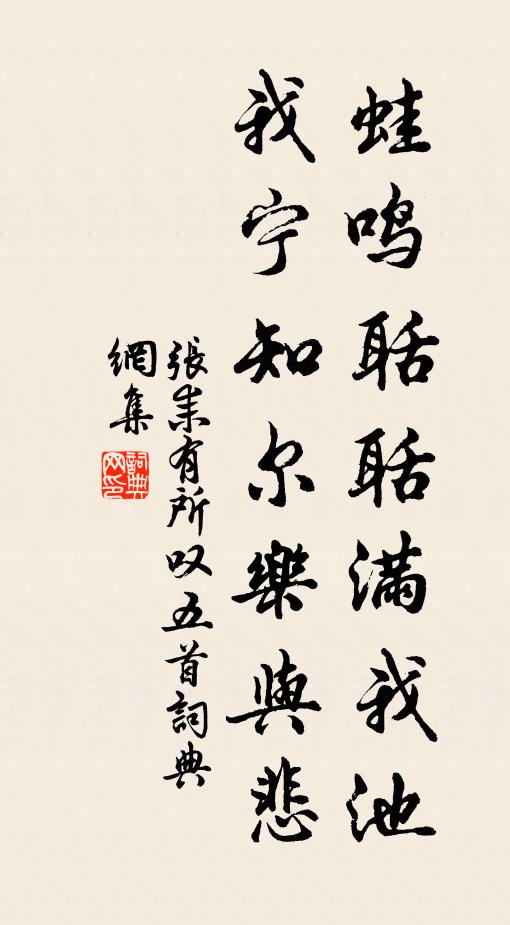 蛙鸣聒聒满我池
我宁知尔樂與悲
張耒有所叹五首詞典
網集
詞典
网印